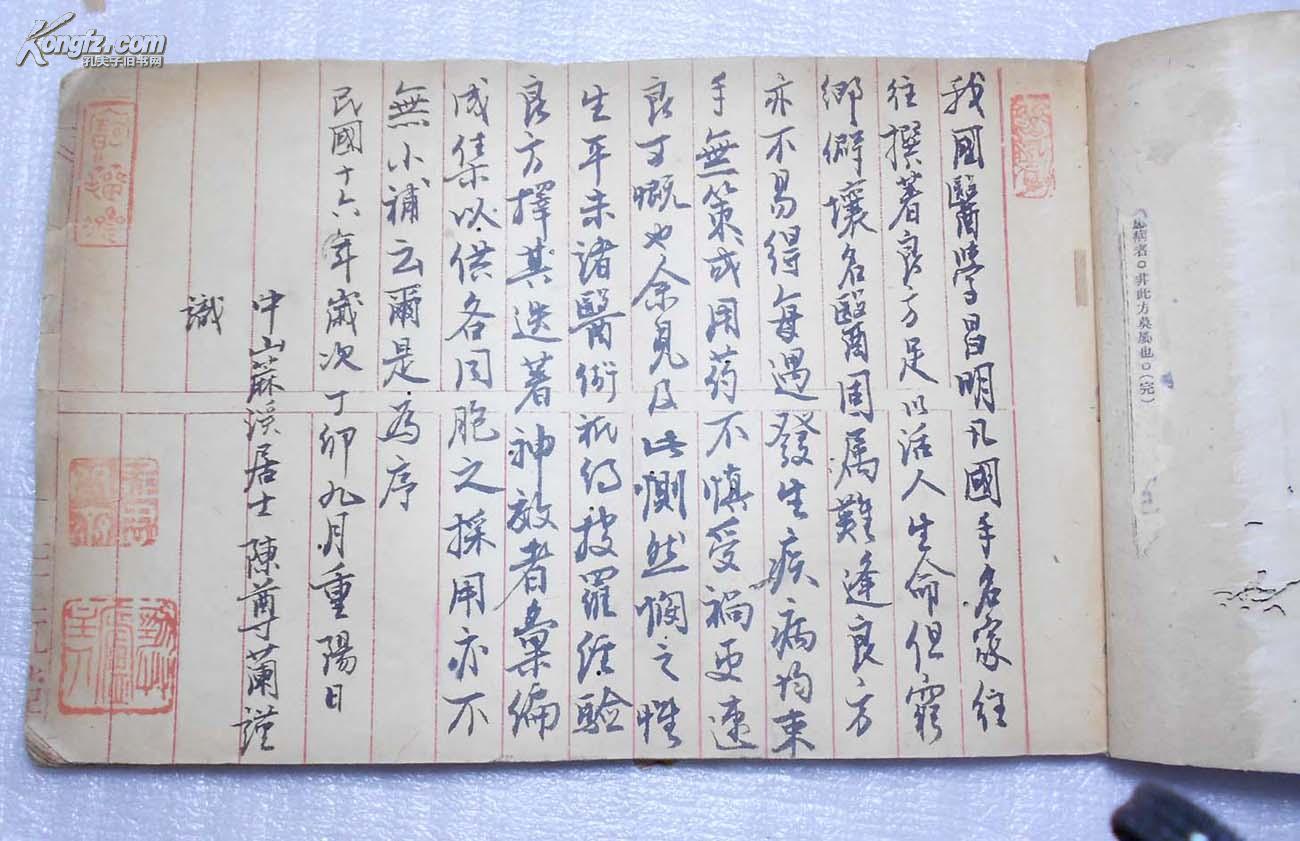 我國醫學昌明凡國手名家往
往撰著良方足以活人生命但窮
鄉僻壤名醫固屬難逢良方
亦不易得每遇發生疾病均束
手無策或用药不慎受禍更速
良可慨也余見及此惻然憫之惟
生平未諳醫術祇約搜羅經驗
良方擇其迭著神效者彙編
成集以供各同胞之採用亦不
無小補云爾是為序
民國十六年歲次丁卯九月重陽日
中山蔴溪居士陳尊蘭謹
識
者。非此方莫屬也。(完)
Kongfz.com
孔夫子旧书网